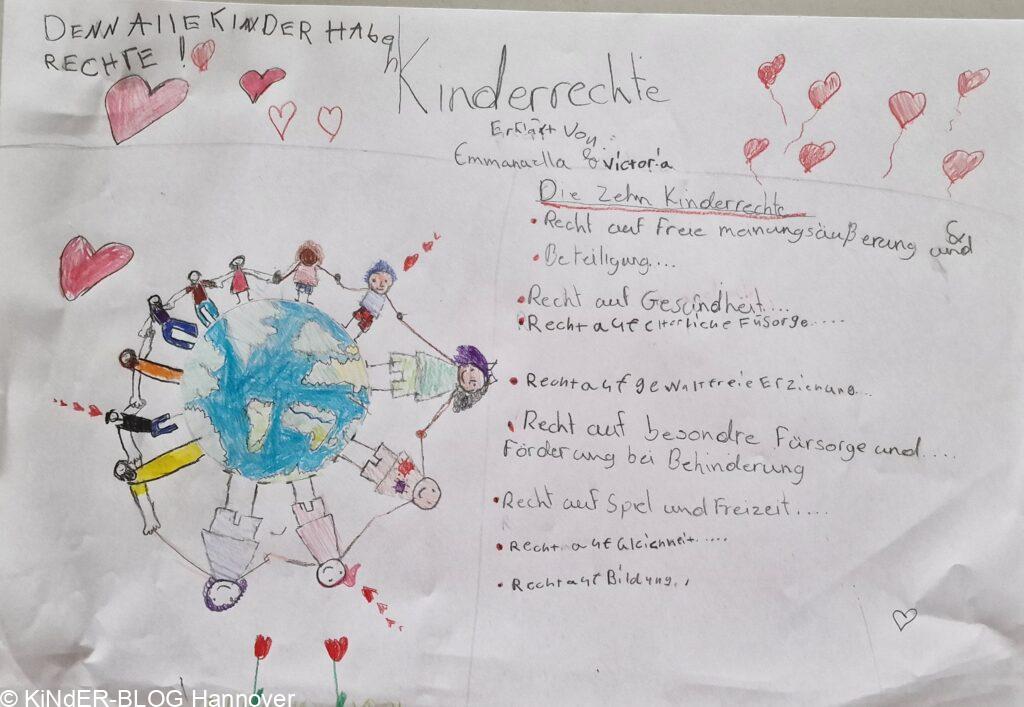 DENN AllE KINDER HAbEn
RECHTE !
Kinderrechte
Erklärt Von :
Emmanaella & Victoria
Die Zehn Kinderrechte
• Recht auf Freie meinungsäußerung & und
• Beteiligung...
• Recht auf Gesundheit....
• Recht auf elterliche Füsorge.....
• Recht auf gewaltfreie Erziehung...
• Recht auf besondre Fürsorge und....
Förderung bei Behinderung
• Recht auf Spiel und Freizeit....
• Recht auf Gleichheit.....
• Recht auf Bildung..
© KiNdER-BLOG Hannover